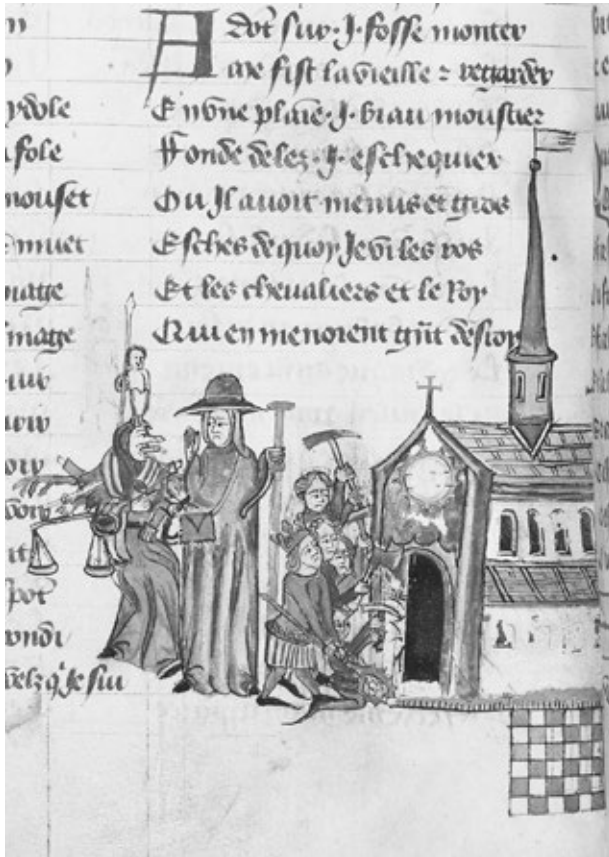 ydole
fole
mouset
muet
ymage
pot
ondi
velz q̃ Je sui
Adõt sur .J. fosse monter
Me fist la vieille z regarder
En vne plaĩe .J. biau moustier
Fonde delez .J. eschequier
Ou Jl auoit menus et gros
Esches de quoy Je vi les ros
Et les cheualiers et le Roy
Qui en menoient gñt desroy